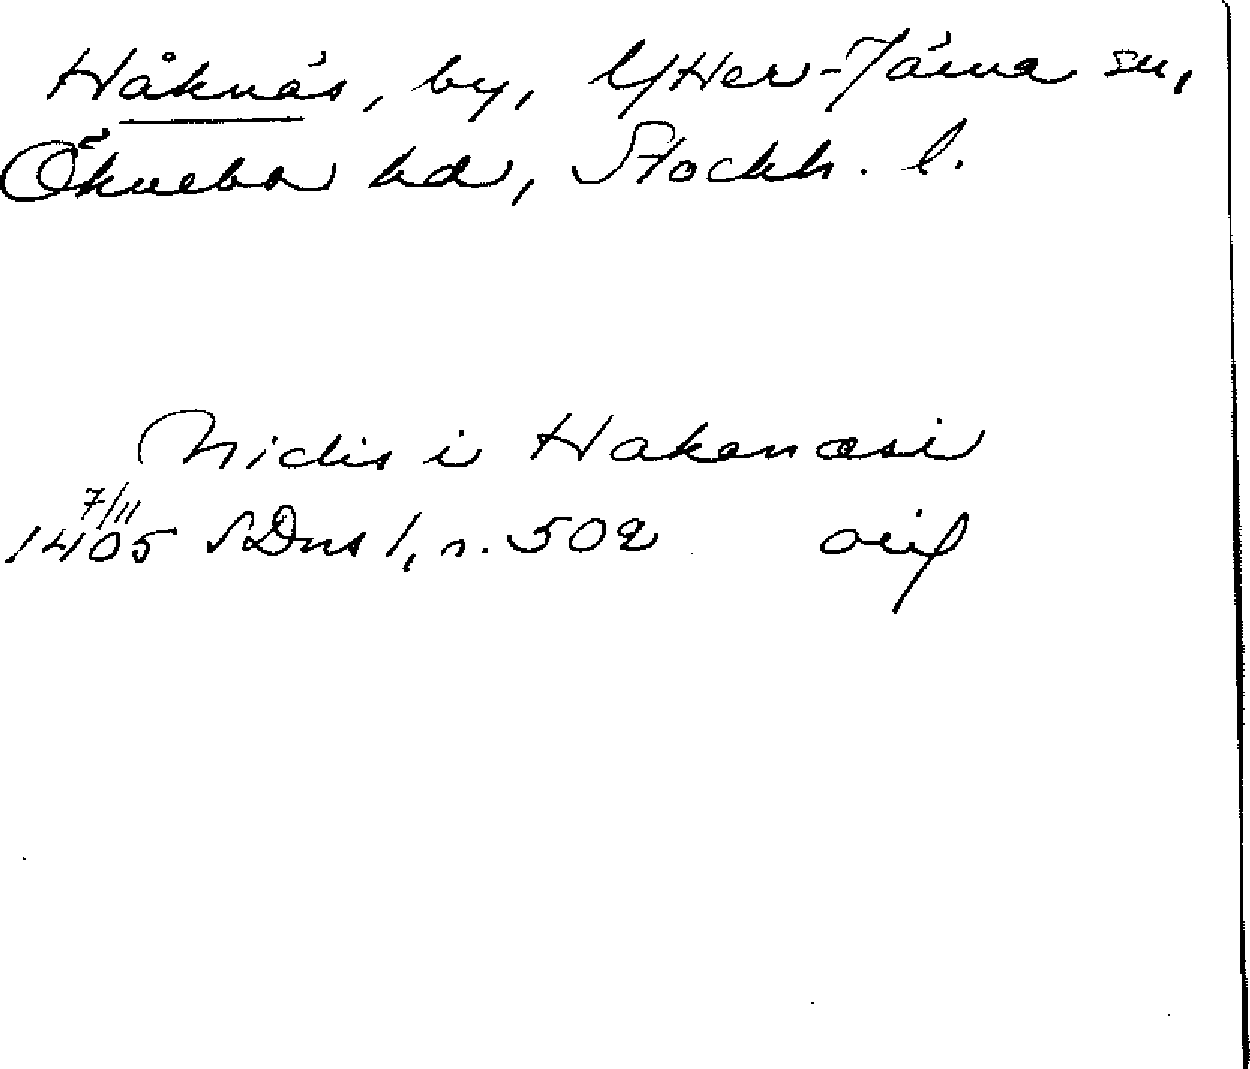 Håknäs, by, Ytter-Järna sn,
Öknebo hd, Stockh. l.
Nidis i Hakanæsi
7/11
1405 SDns 1, n. 502 orig